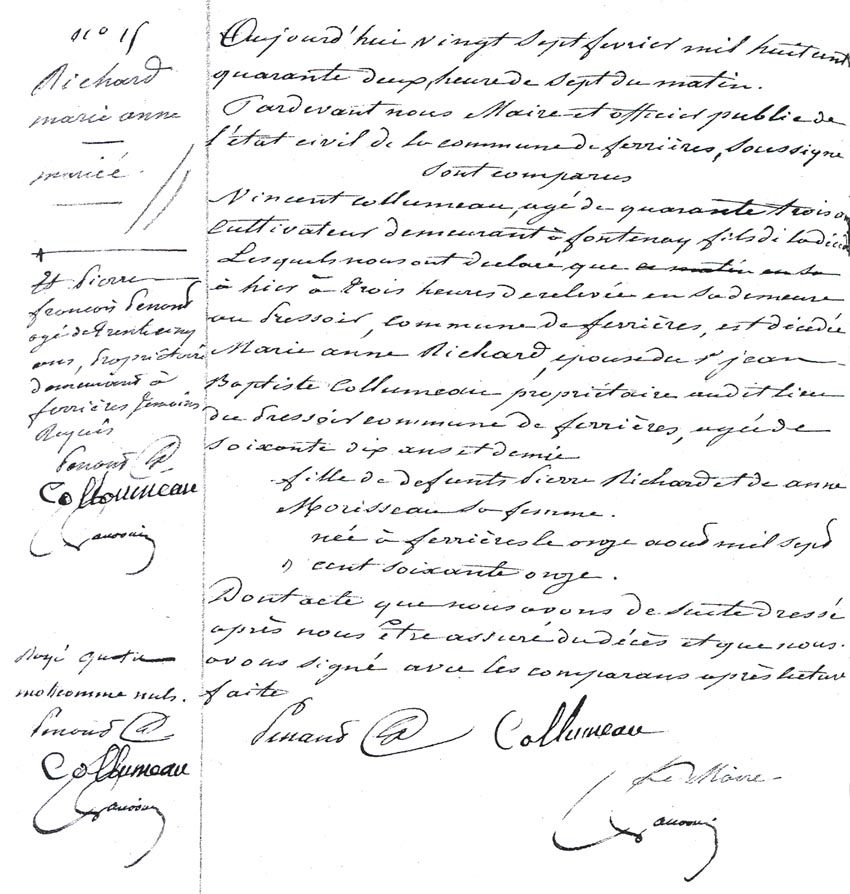 nº 15
Richard
marie anne
mariée.
Et Pierre
françois Penand
agé de trente cinq
ans, Propriétaire
demeurant à
ferrières temoins
Requis
Penand
Collumeau
Royé quatre
mots comme nuls.
Penand
Collumeau
Aujourd'hui vingt sept fevrier mil huit cent
quarante deux, heure de sept du matin.
Pardevant nous Maire et officier public de
l'état civil de la commune de ferrières, soussigné
sont comparus
Vincent Collumeau, agé de quarante trois an
Cultivateur demeurant à fontenay fils de la décé
Lesquels nous ont declaré que ce matin en sa
à hier à trois heures de relevée en sa demeure
au Pressoir, commune de ferrières, est décédée
Marie anne Richard, epouse du Sr jean
Baptiste Collumeau propriétaire audit lieu
du Pressoir commune de ferrières, agée de
soixante dix ans et demie
fille de defunts Pierre Richard et de anne
Morisseau sa femme.
née à ferrières le onze aoud mil sept
cent soixante onze.
Dont acte que nous avons de suite dressé
après nous être assuré du décès et que nous
avons signé avec les comparans après lecture
faite
Penand Collumeau
Le Maire